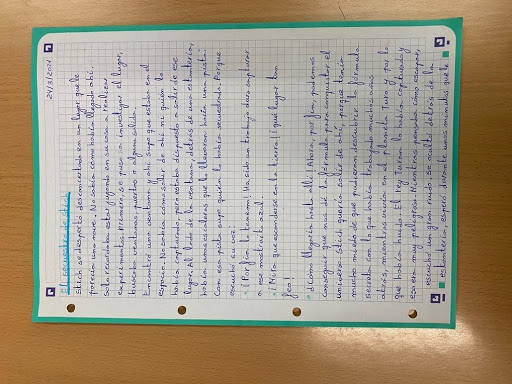 24/3/2021
El secuestro de Stich
Stich se despertó desconcertado en un lugar que le
parecía una nave. No sabía cómo había llegado ahí.
Solo recordaba estar jugando en su casa a realizar
experimentos. Primero, se puso a investigar el lugar,
buscaba ventanas, puertas o alguna salida.
Encontró una ventana y ahí supo que estaba en el
espacio. No sabía cómo salir de ahí ni quién lo
había capturado, pero estaba dispuesto a salir de ese
lugar. Al lado de la ventana, detrás de una estantería,
había unas escaleras que lo llevaron hacia una pista.
Con esa pista supo quién lo había secuestrado. Porque
escuchó su voz.
- ¡Por fin lo tenemos! Ha sido un trabajo duro capturar
a ese monstruito azul.
- ¡Mira que esconderse en la tierra! ¡Y qué lugar tan
feo!
- ¿Cómo llegaría hasta allí? ¡Ahora, por fin, podremos
conseguir que nos dé la fórmula para conquistar el
universo. Stich quería salir de ahí, porque tenía
mucho miedo de que pudieran descubrir la fórmula
secreta con la que había trabajado muchos años
atrás, mientras vivía en el planeta Turo y por lo
que había huido. El rey Turen lo había capturado y
eso era muy peligroso. Mientras pensaba cómo escapar,
escuchó un gran ruido. Se ocultó detrás de la
estantería, esperó durante unos minutos que le